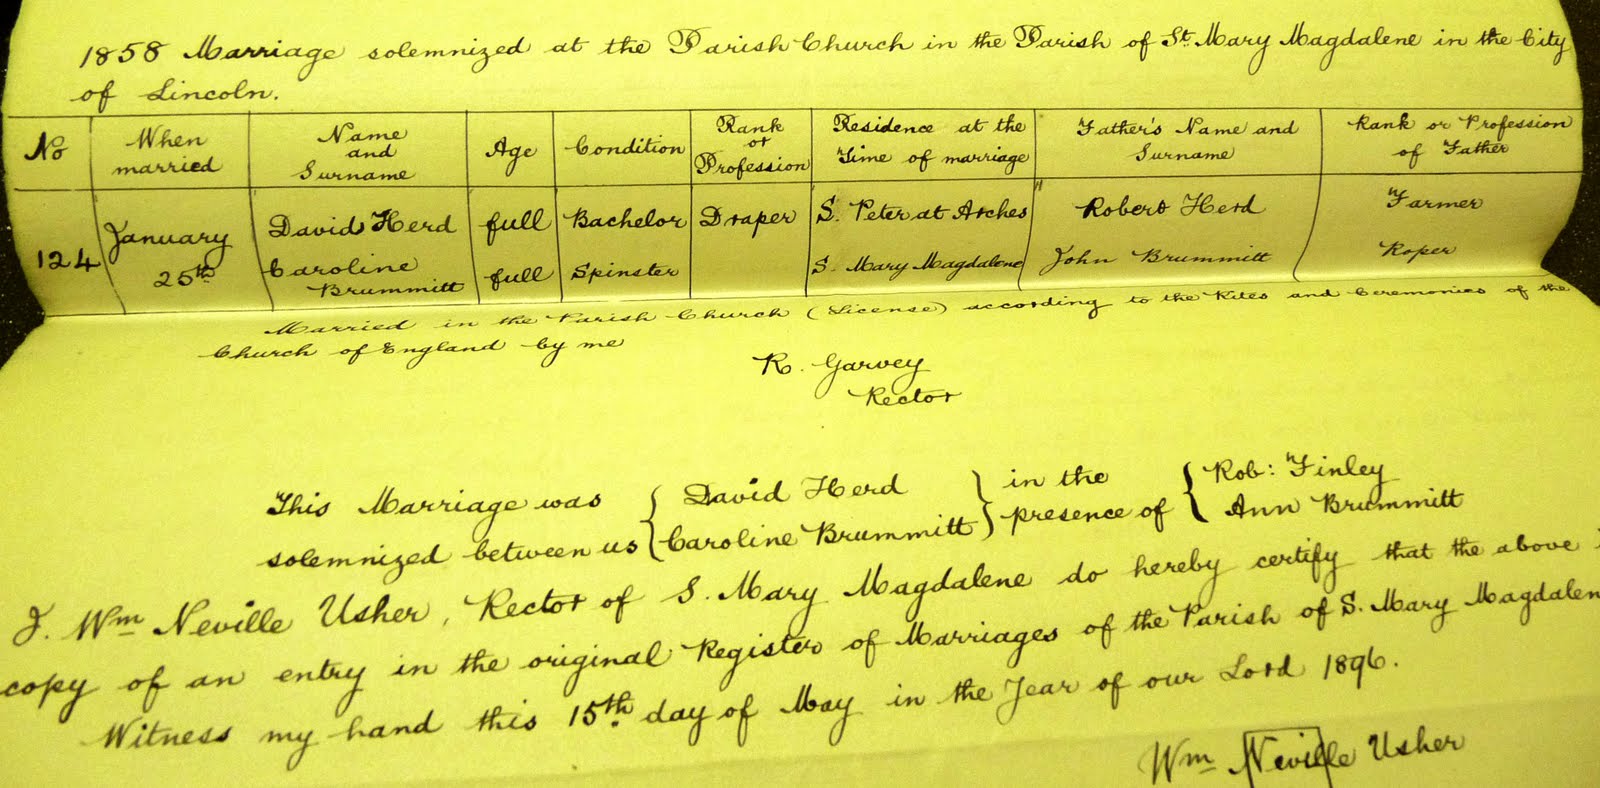 1858 Marriage solemnized at the Parish Church in the Parish of St. Mary Magdalene in the City
of Lincoln.
No
When married
Name and Surname
Age
Condition
Rank or Profession
Residence at the Time of marriage
Father's Name and Surname
Rank or Profession of Father
124
January 25th
David Herd
full
Bachelor
Draper
S. Peter at Arches
Robert Herd
Farmer
Caroline Brummitt
full
Spinster
S. Mary Magdalene
John Brummitt
Roper
Married in the Parish Church (License) according to the Rites and Ceremonies of the
Church of England by me
R. Garvey
Rector
This Marriage was solemnized between us { David Herd Caroline Brummitt } in the presence of { Rob: Finley Ann Brummitt
I. Wm Neville Usher, Rector of S. Mary Magdalene do hereby certify that the above
copy of an entry in the original Register of Marriages of the Parish of S. Mary Magdalen
Witness my hand this 15th day of May in the Year of our Lord 1896.
Wm Neville Usher